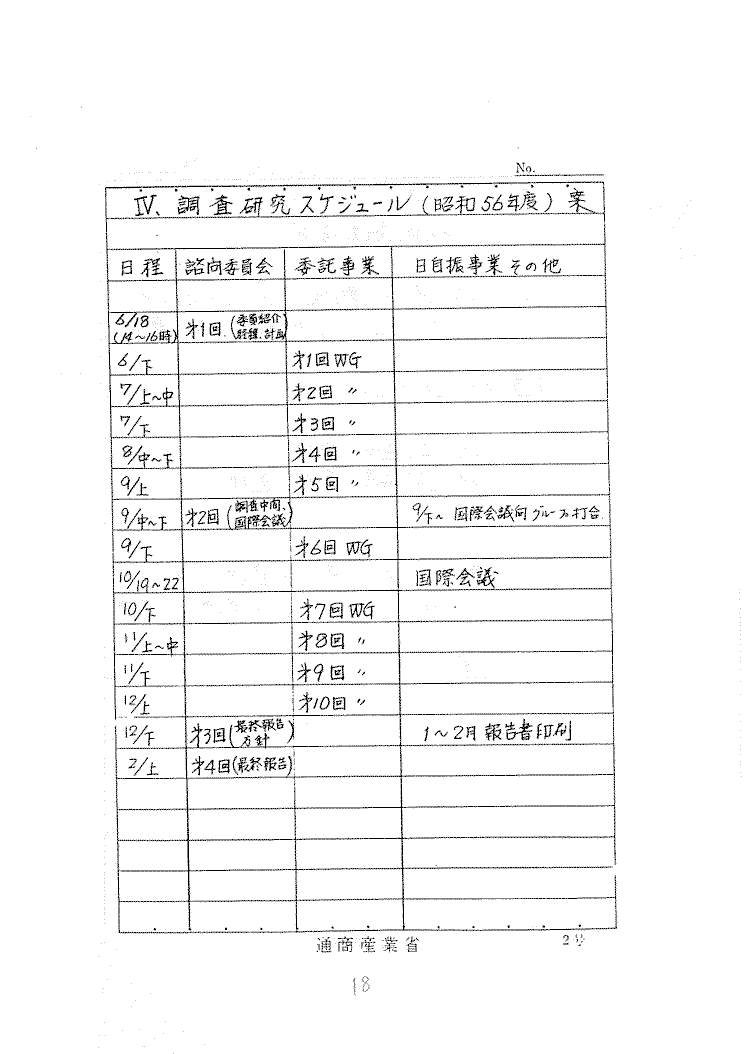 No.
Ⅳ、調査研究スケジュール(昭和56年度)案
日程 諮向委員会 委託事業 日自振事業その他
6/18 (14~16時) 第1回 (委員紹介 経緯、計画)
6/下 第1回WG
7/上~中 第2回 〃
7/下 第3回 〃
8/中~下 第4回 〃
9/上 第5回 〃
9/中~下 第2回 (調査中間、国際会議) 9/下~ 国際会議向グループ打合
9/下 第6回 WG
10/19~22 国際会議
10/下 第7回WG
11/上~中 第8回 〃
11/下 第9回 〃
12/上 第10回 〃
12/下 第3回(最終報告方針) 1~2月 報告書印刷
2/上 第4回(最終報告)
通商産業省 2号
18